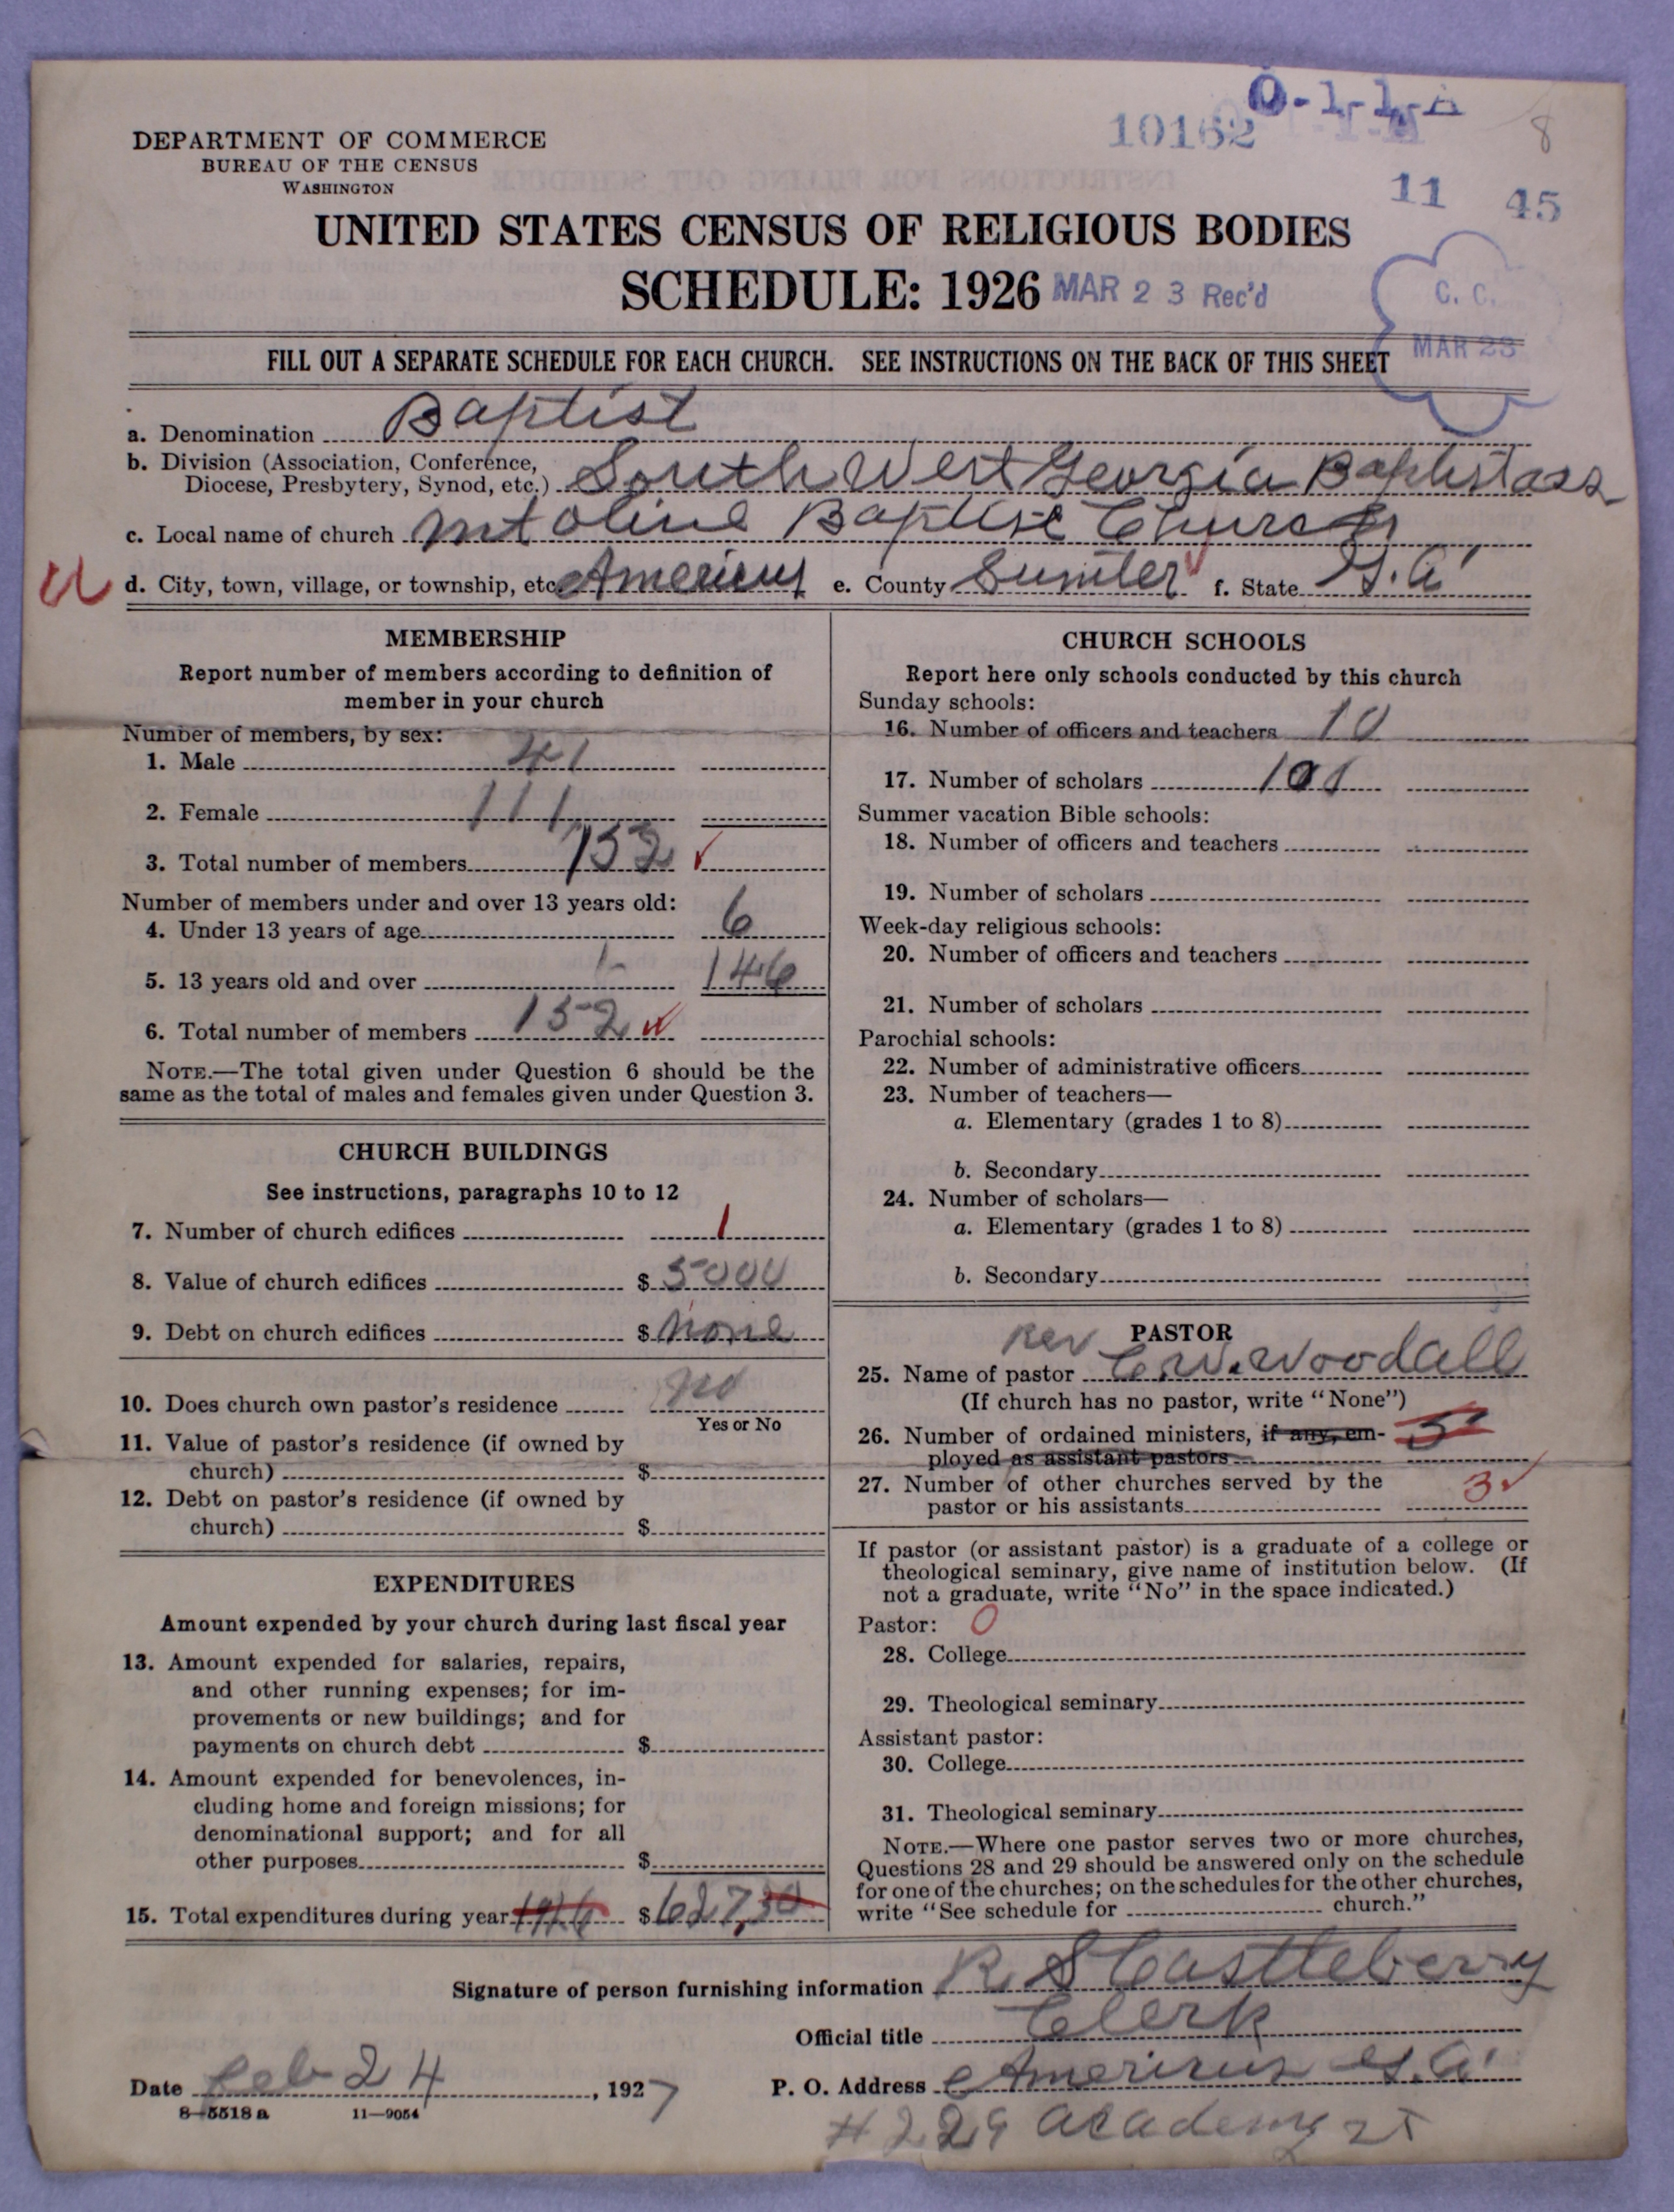 O-1-1-A
10162
8
11 45
DEPARTMENT OF COMMERCE
BUREAU OF THE CENSUS
WASHINGTON
UNITED STATES CENSUS OF RELIGIOUS BODIES
SCHEDULE: 1926 MAR 23 Rec'd
C. C.
MAR 23
FILL OUT A SEPARATE SCHEDULE FOR EACH CHURCH. SEE INSTRUCTIONS ON THE BACK OF THIS SHEET
a. Denomination Baptist
b. Division (Association, Conference,
Diocese, Presbytery, Synod, etc.) South West Georgia Baptist ass
c. Local name of church Mt Olive Baptist Church
d. City, town, village, or township, etc. Americus e. County Sumter f. State G.a
MEMBERSHIP
Report number of members according to definition of
member in your church
Number of members, by sex:
1. Male 41
2. Female 111
3. Total number of members 152 ✓
Number of members under and over 13 years old:
4. Under 13 years of age 6
5. 13 years old and over 146
6. Total number of members 152 ✓
NOTE.—The total given under Question 6 should be the
same as the total of males and females given under Question 3.
CHURCH BUILDINGS
See instructions, paragraphs 10 to 12
7. Number of church edifices 1
8. Value of church edifices $ 5000
9. Debt on church edifices $ none
10. Does church own pastor's residence no
Yes or No
11. Value of pastor's residence (if owned by
church) $
12. Debt on pastor's residence (if owned by
church) $
EXPENDITURES
Amount expended by your church during last fiscal year
13. Amount expended for salaries, repairs,
and other running expenses; for im-
provements or new buildings; and for
payments on church debt $
14. Amount expended for benevolences, in-
cluding home and foreign missions; for
denominational support; and for all
other purposes $
15. Total expenditures during year 1926 $ 627,30
CHURCH SCHOOLS
Report here only schools conducted by this church
Sunday schools:
16. Number of officers and teachers 10
17. Number of scholars 101
Summer vacation Bible schools:
18. Number of officers and teachers
19. Number of scholars
Week-day religious schools:
20. Number of officers and teachers
21. Number of scholars
Parochial schools:
22. Number of administrative officers
23. Number of teachers—
a. Elementary (grades 1 to 8)
b. Secondary
24. Number of scholars—
a. Elementary (grades 1 to 8)
b. Secondary
PASTOR
25. Name of pastor Rev C. W. Woodall
(If church has no pastor, write "None")
26. Number of ordained ministers, if any, em-
ployed as assistant pastors 5
27. Number of other churches served by the
pastor or his assistants 3 ✓
If pastor (or assistant pastor) is a graduate of a college or
theological seminary, give name of institution below. (If
not a graduate, write "No" in the space indicated.)
Pastor: 0
28. College
29. Theological seminary
Assistant pastor:
30. College
31. Theological seminary
NOTE.—Where one pastor serves two or more churches,
Questions 28 and 29 should be answered only on the schedule
for one of the churches; on the schedules for the other churches,
write "See schedule for church."
Signature of person furnishing information R. S Castleberry
Official title Clerk
Date Feb 24, 1927
P. O. Address Americus G.a
8—5518 a 11—9054
# 229 academy st